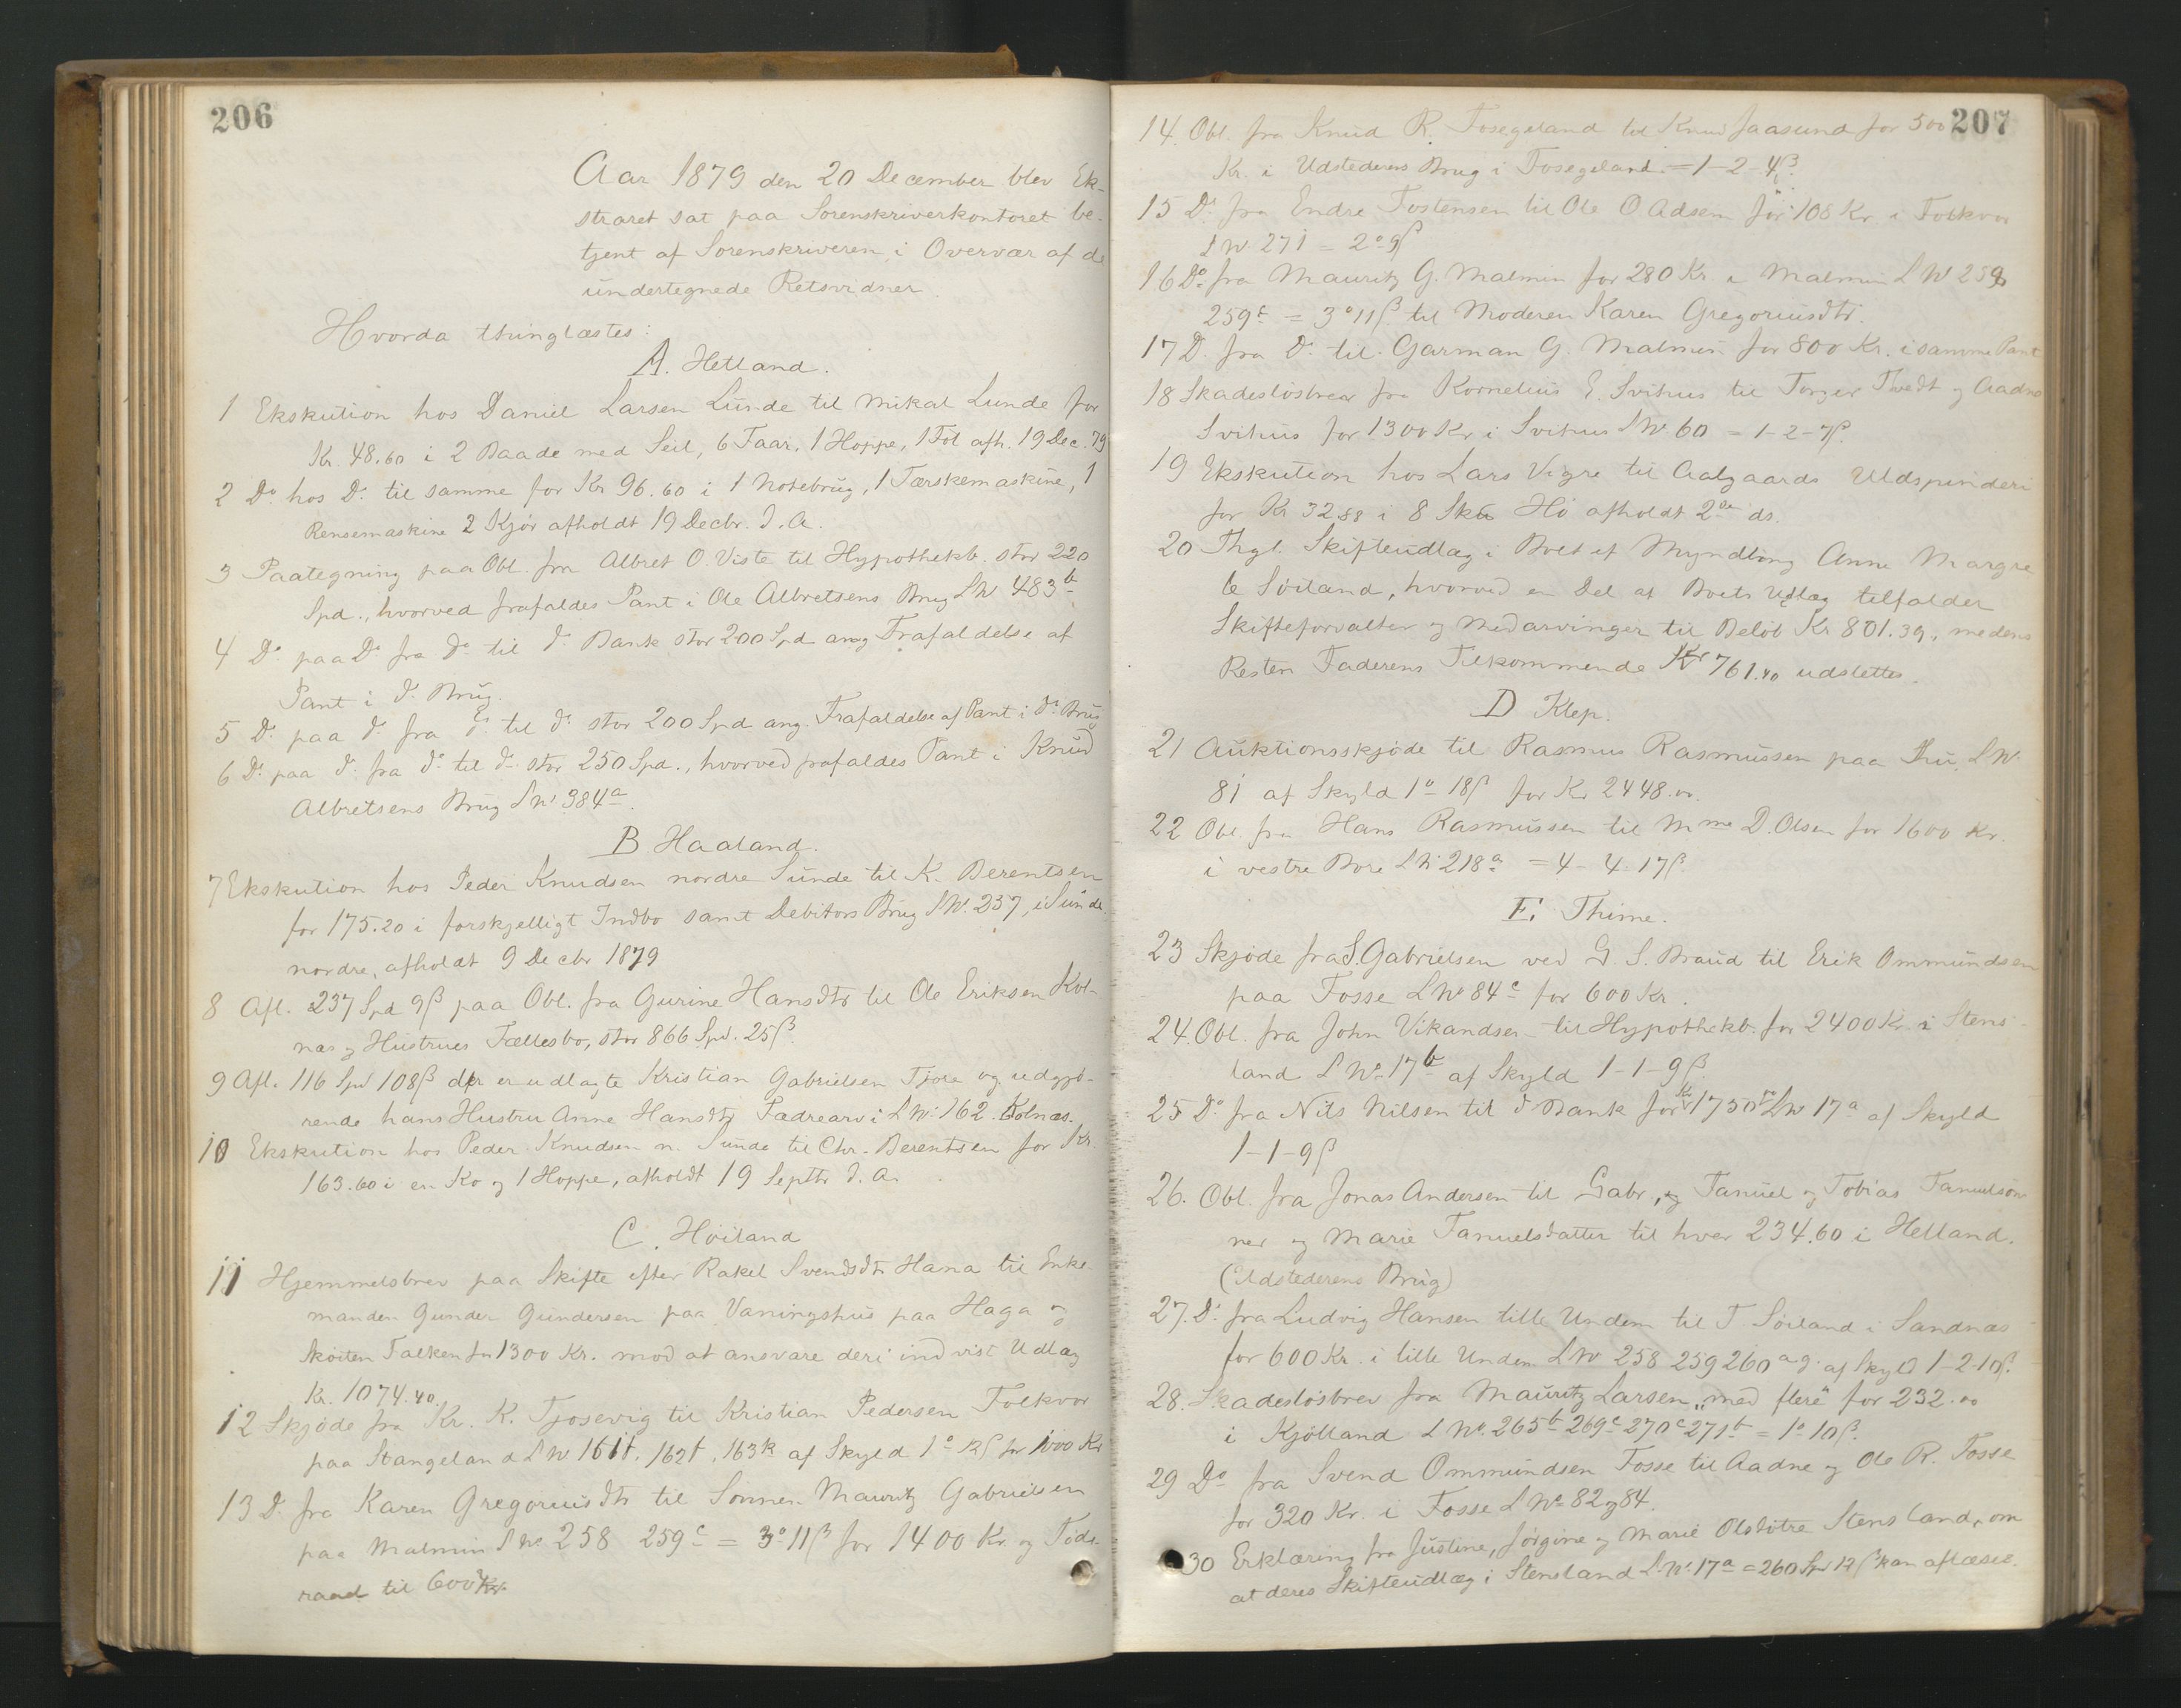 206
Aar 1879 den 20 December blev Ek-
straret sat paa Sorenskriverkontoret be-
tjent af Sorenskriveren i Overvær af de
undertegnede Retsvidner
Hvorda thinglæstes:
A. Hetland.
1 Ekskution hos Daniel Larsen Lunde til Mikal Lunde for
Kr. 48.60 i 2 Baade med Seil, 6 Faar, 1 Hoppe, 1 Føl afh. 19 Dec. 79
2 Do hos Do til samme for Kr 96.60 i 1 Notebrug, 1 Tærskemaskine, 1
Rensemaskine 2 Kjør afholdt 19 Decbr. d. A.
3 Paategning paa Obl. fra Albret O. Viste til Hypothekb. stor 220
Spd., hvorved frafaldes Pant i Ole Albretsens Brug LN 483b
4 Do paa Do fra do til do Bank stor 200 Spd ang Frafaldelse af
Pant i do Brug.
5 Do paa do fra do til do stor 200 Spd ang. Frafaldelse af Pant i do Brug
6 Do paa do fra do til do stor 250 Spd., hvorved frafaldes Pant i Knud
Albretsens Brug LNo 384a.
B Haaland.
7 Ekskution hos Peder Knudsen nordre Sunde til K. Berentsen
for 175.20 i forskjelligt Indbo samt Debitors Brug LNo. 237, i Sunde
nordre, afholdt 9 Decbr 1879
8 Afl. 237 Spd 9β paa Obl. fra Gurine Hansdtr til Ole Eriksen Kol-
nas og Hustrues Fællesbo, stor 866 Spd. 25β.
9 Afl. 116 Spd 108β der er udlagte Kristian Gabrielsen Tjora og udgjø-
rende hans Hustru Anne Hansdtr Fædrearv i LNo 162. Kolnæs.
10 Ekskution hos Peder Knudsen n. Sunde til Chr. Berentsen for Kr.
163.60 i en Ko og 1 Hoppe, afholdt 19 Septbr d. A.
C. Høiland
11 Hjemmelsbrev paa Skifte efter Rakel Svendsdtr Hana til Enke-
manden Gunder Gundersen paa Vaningshus paa Haga og
Skøiten Falken for 1300 Kr. mod at ansvare deri indvist Udlæg
Kr. 1074.40.
12 Skjøde fra Kr. K. Tjosevig til Kristian Pedersen Folkvor
paa Stangeland LN 161t, 162t, 163k af Skyld 1o 12β for 1000 Kr
13 Do fra Karen Gregoriusdtr til Sønnen Mauritz Gabrielsen
paa Malmin LNo 258 259c = 3o 11β for 1400 Kr. og Føde-
raad til 600 Kr.
207
14. Obl. fra Knud R. Fosegeland til Knud Jaasund for 500
Kr. i Udstederens Brug i Fosegeland = 1-2-4β.
15 Do fra Endre Tostensen til Ole O Adsem for 108 Kr. i Folkvor
LN. 271 = 2o 9β
16 Do fra Mauritz G. Malmin for 280 Kr. i Malmin LN 258
259c = 3o 11β til Moderen Karen Gregoriusdtr.
17 D. fra Do til Garman G. Malmin for 800 Kr. i samme Pant
18 Skadesløsbrev fra Kornelius E. Svihus til Torger Tvedt og Aadne
Svihus for 1300 Kr i Svihus LNo. 60 = 1-2-7β.
19 Ekskution hos Lars Vigre til Aalgaards Uldspinderi
for Kr 32.88 i 8 Hø afholdt 2den ds.
20 Thgl. Skifteudlæg i Boet ef Myndling Anne Margre
te Søiland, hvorved en Del af Boets Udlæg tilfalder
Skifteforvalter og Medarvinger til Beløb Kr 801.39, medens
Resten Faderens Tilkommende Kr 761.40 udslettes.
D Klep.
21 Auktionsskjøde til Rasmus Rasmussen paa Thu, LN.
81 af Skyld 1o 18β for Kr 2448.00.
22 Obl. fra Hans Rasmussen til Mme D. Olsen for 1600 Kr.
i vestre Bore LN 218a = 4-4-17β.
E. Thime.
23 Skjøde fra S. Gabrielsen ved G. S. Braud til Erik Ommundsen
paa Fosse LNo 84c for 600 Kr.
24. Obl. fra John Vikandsen til Hypothekb. for 2400 Kr. i Stens-
land LNo 17b af Skyld 1-1-9β.
25 Do fra Nils Nilsen til d Bank for Kr 1750 LN 17a af Skyld
1-1-9β
26. Obl. fra Jonas Andersen til Gabr., og Tanuel og Tobias Tanuelsøn-
ner og Marie Tanuelsdatter til hver 234.60 i Helland.
(Udstederens Brug)
27. Do fra Ludvig Hansen lille Undem til T Søiland i Sandnæs
for 600 Kr. i lille Undem LN 258 259 260 a g. af Skyld 1-2-10β.
28. Skadesløsbrev fra Mauritz Larsen "med flere" for 232.00
i Kjølland LNo. 265b 269c 270c 271b = 1o 10β.
29 Do fra Svend Ommundsen Fosse til Aadne og Ole R. Fosse
for 320 Kr. i Fosse LNo 82 og 84.
30 Erklæring fra Justine, Jørgine og Marie Olsdøtre Stensland, om
at deres Skifteudlæg i Stensland LNo 17a = 260 Spd 12β kan aflæses.